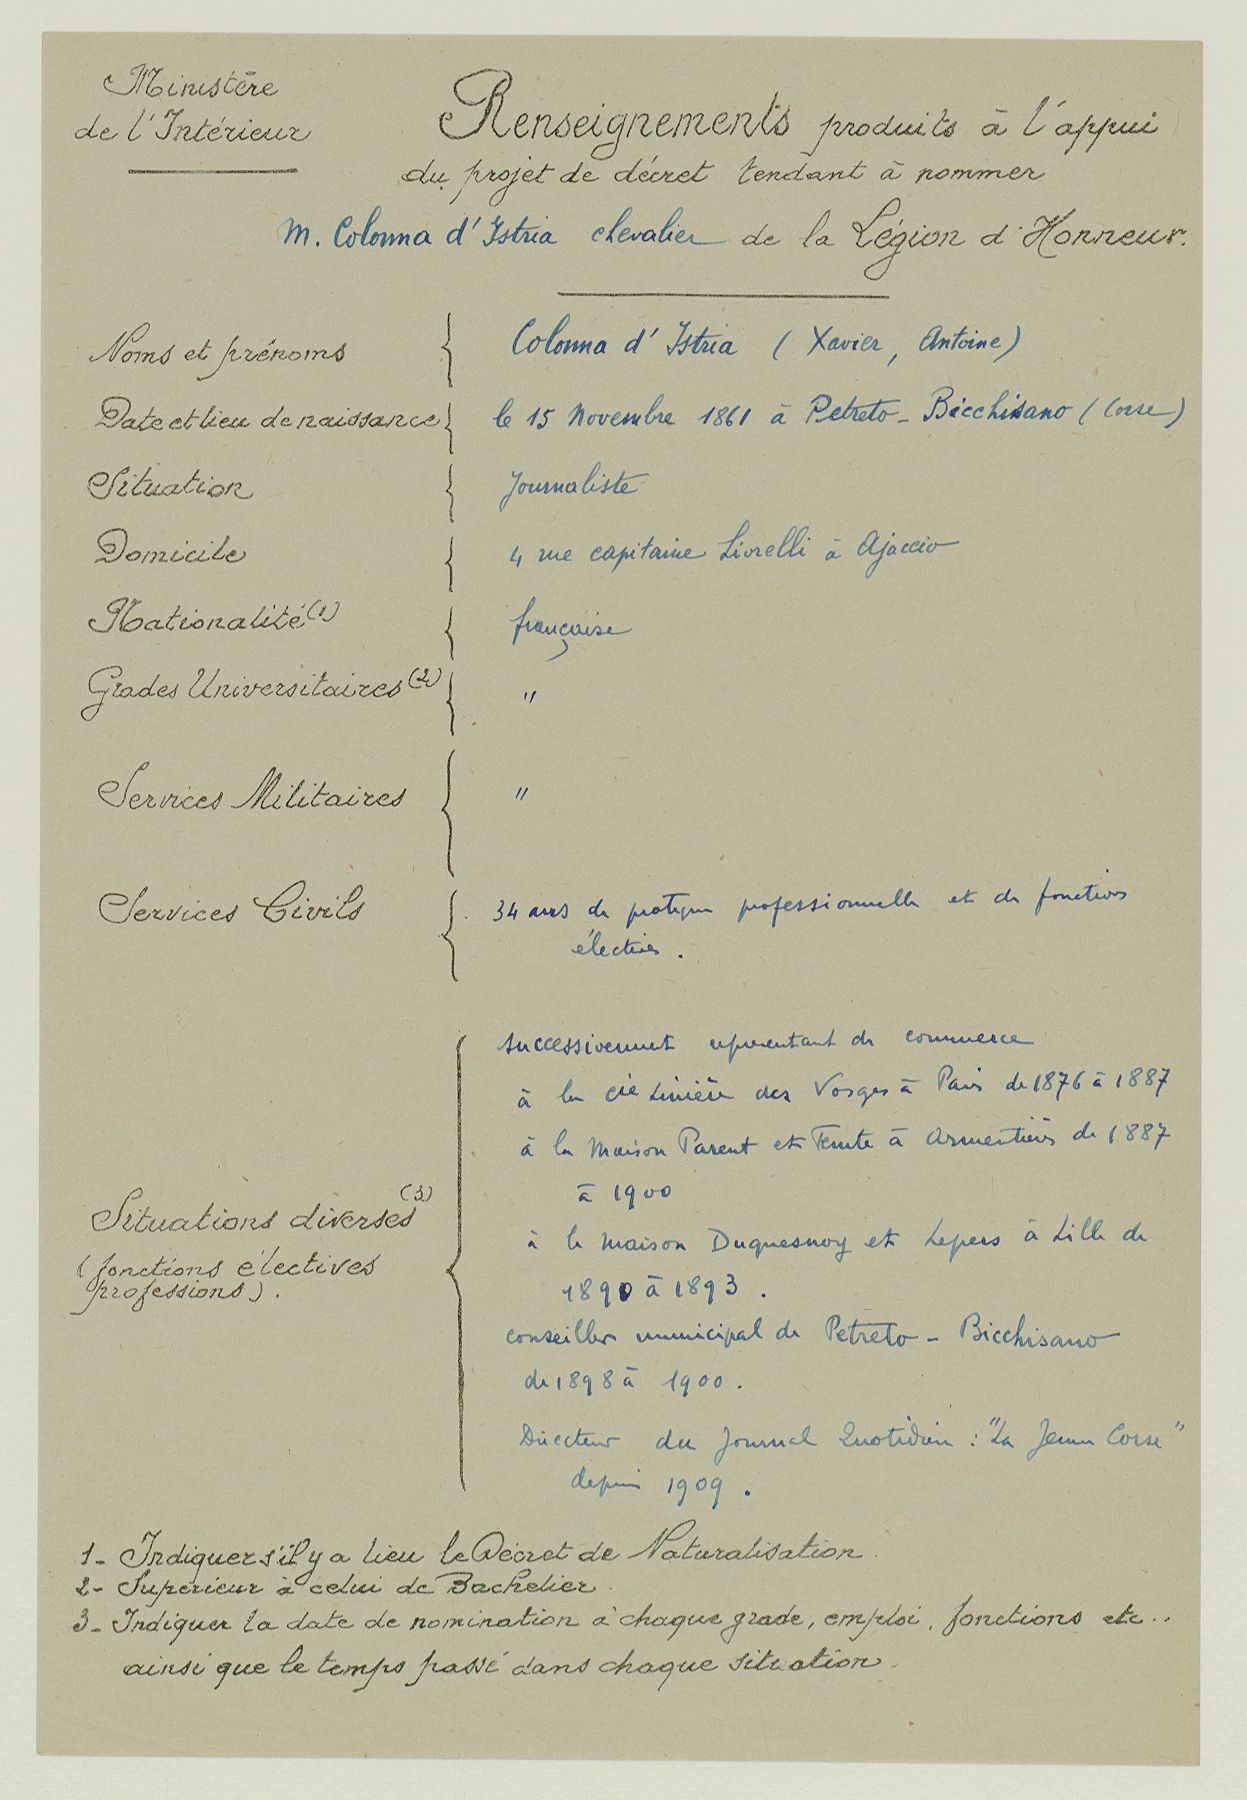 Ministère
de l'Intérieur
Renseignements produits à l'appui
du projet de décret tendant à nommer
M. Colonna d'Istria chevalier de la Légion d'Honneur.
Noms et prénoms { Colonna d'Istria (Xavier, Antoine)
Date et lieu de naissance { le 15 Novembre 1861 à Petreto-Bicchisano (Corse)
Situation { Journaliste
Domicile { 4 rue capitaine Livrelli à Ajaccio
Nationalité (1) { française
Grades Universitaires (2) { "
Services Militaires { "
Services Civils { 34 ans de pratique professionnelle et de fonctions
électives.
successivement représentant de commerce
à la Cie Linière des Vosges à Paris de 1876 à 1887
à la Maison Parent et à Armentières de 1887
à 1900
à la Maison Duquesnoy et Lepers à Lille de
1890 à 1893.
Situations diverses (3)
(fonctions électives
professions).
conseiller municipal de Petreto-Bicchisano
de 1898 à 1900.
Directeur du Journal Quotidien : "La Jeune Corse"
depuis 1909.
1- Indiquer s'il y a lieu le Décret de Naturalisation.
2- Supérieur à celui de Bachelier.
3- Indiquer la date de nomination à chaque grade, emploi, fonctions etc..
ainsi que le temps passé dans chaque situation.